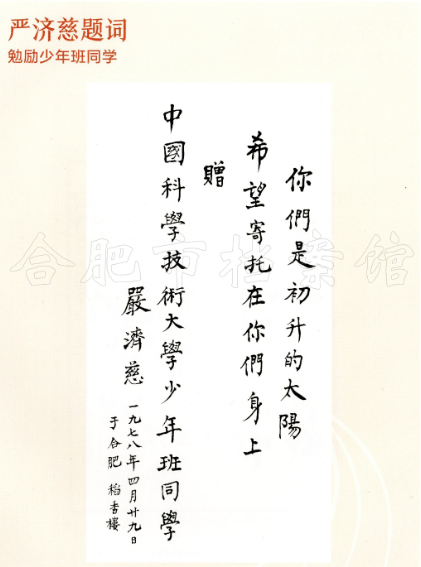 严济慈题词
勉励少年班同学
你們是初升的太陽
希望寄托在你們身上
贈
中國科學技術大學少年班同學
嚴濟慈
一九七八年四月廿九日
于合肥稻香樓
合肥市档案馆